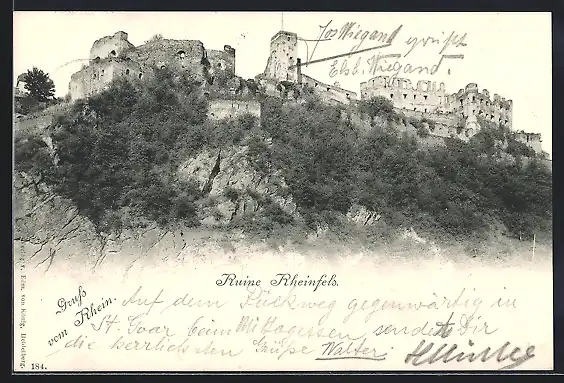 Jos Wiegand grüßt
Elsb. Wiegand.
Ruine Rheinfels.
Gruß
vom Rhein.
Auf dem Rückweg gegenwärtig in
St. Goar beim Mittagessen sendet Dir
die herzlichsten Grüße Walter
v. Edm. von König, Heidelberg.
184.